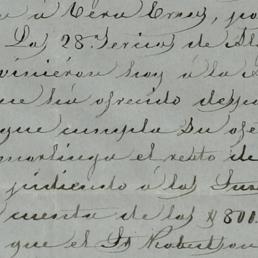 a á Vera Cruz, po
Las 28 Tercios de
vinieron hoy á la
que ha ofrecido des
que cumpla su ofe
martinga el resto de
pidiendo á los
cuenta de los $800
que el Sr Robertson